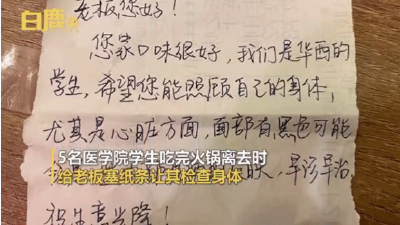 白鹿
老板您好!
您家口味很好,我们是华西的
学生,希望您能照顾自己的身体,
尤其是心脏方面,面部有黑色可能
5名医学院学生吃完火锅离去时
早诊早治
给老板塞纸条让其检查身体
祝生意兴隆!